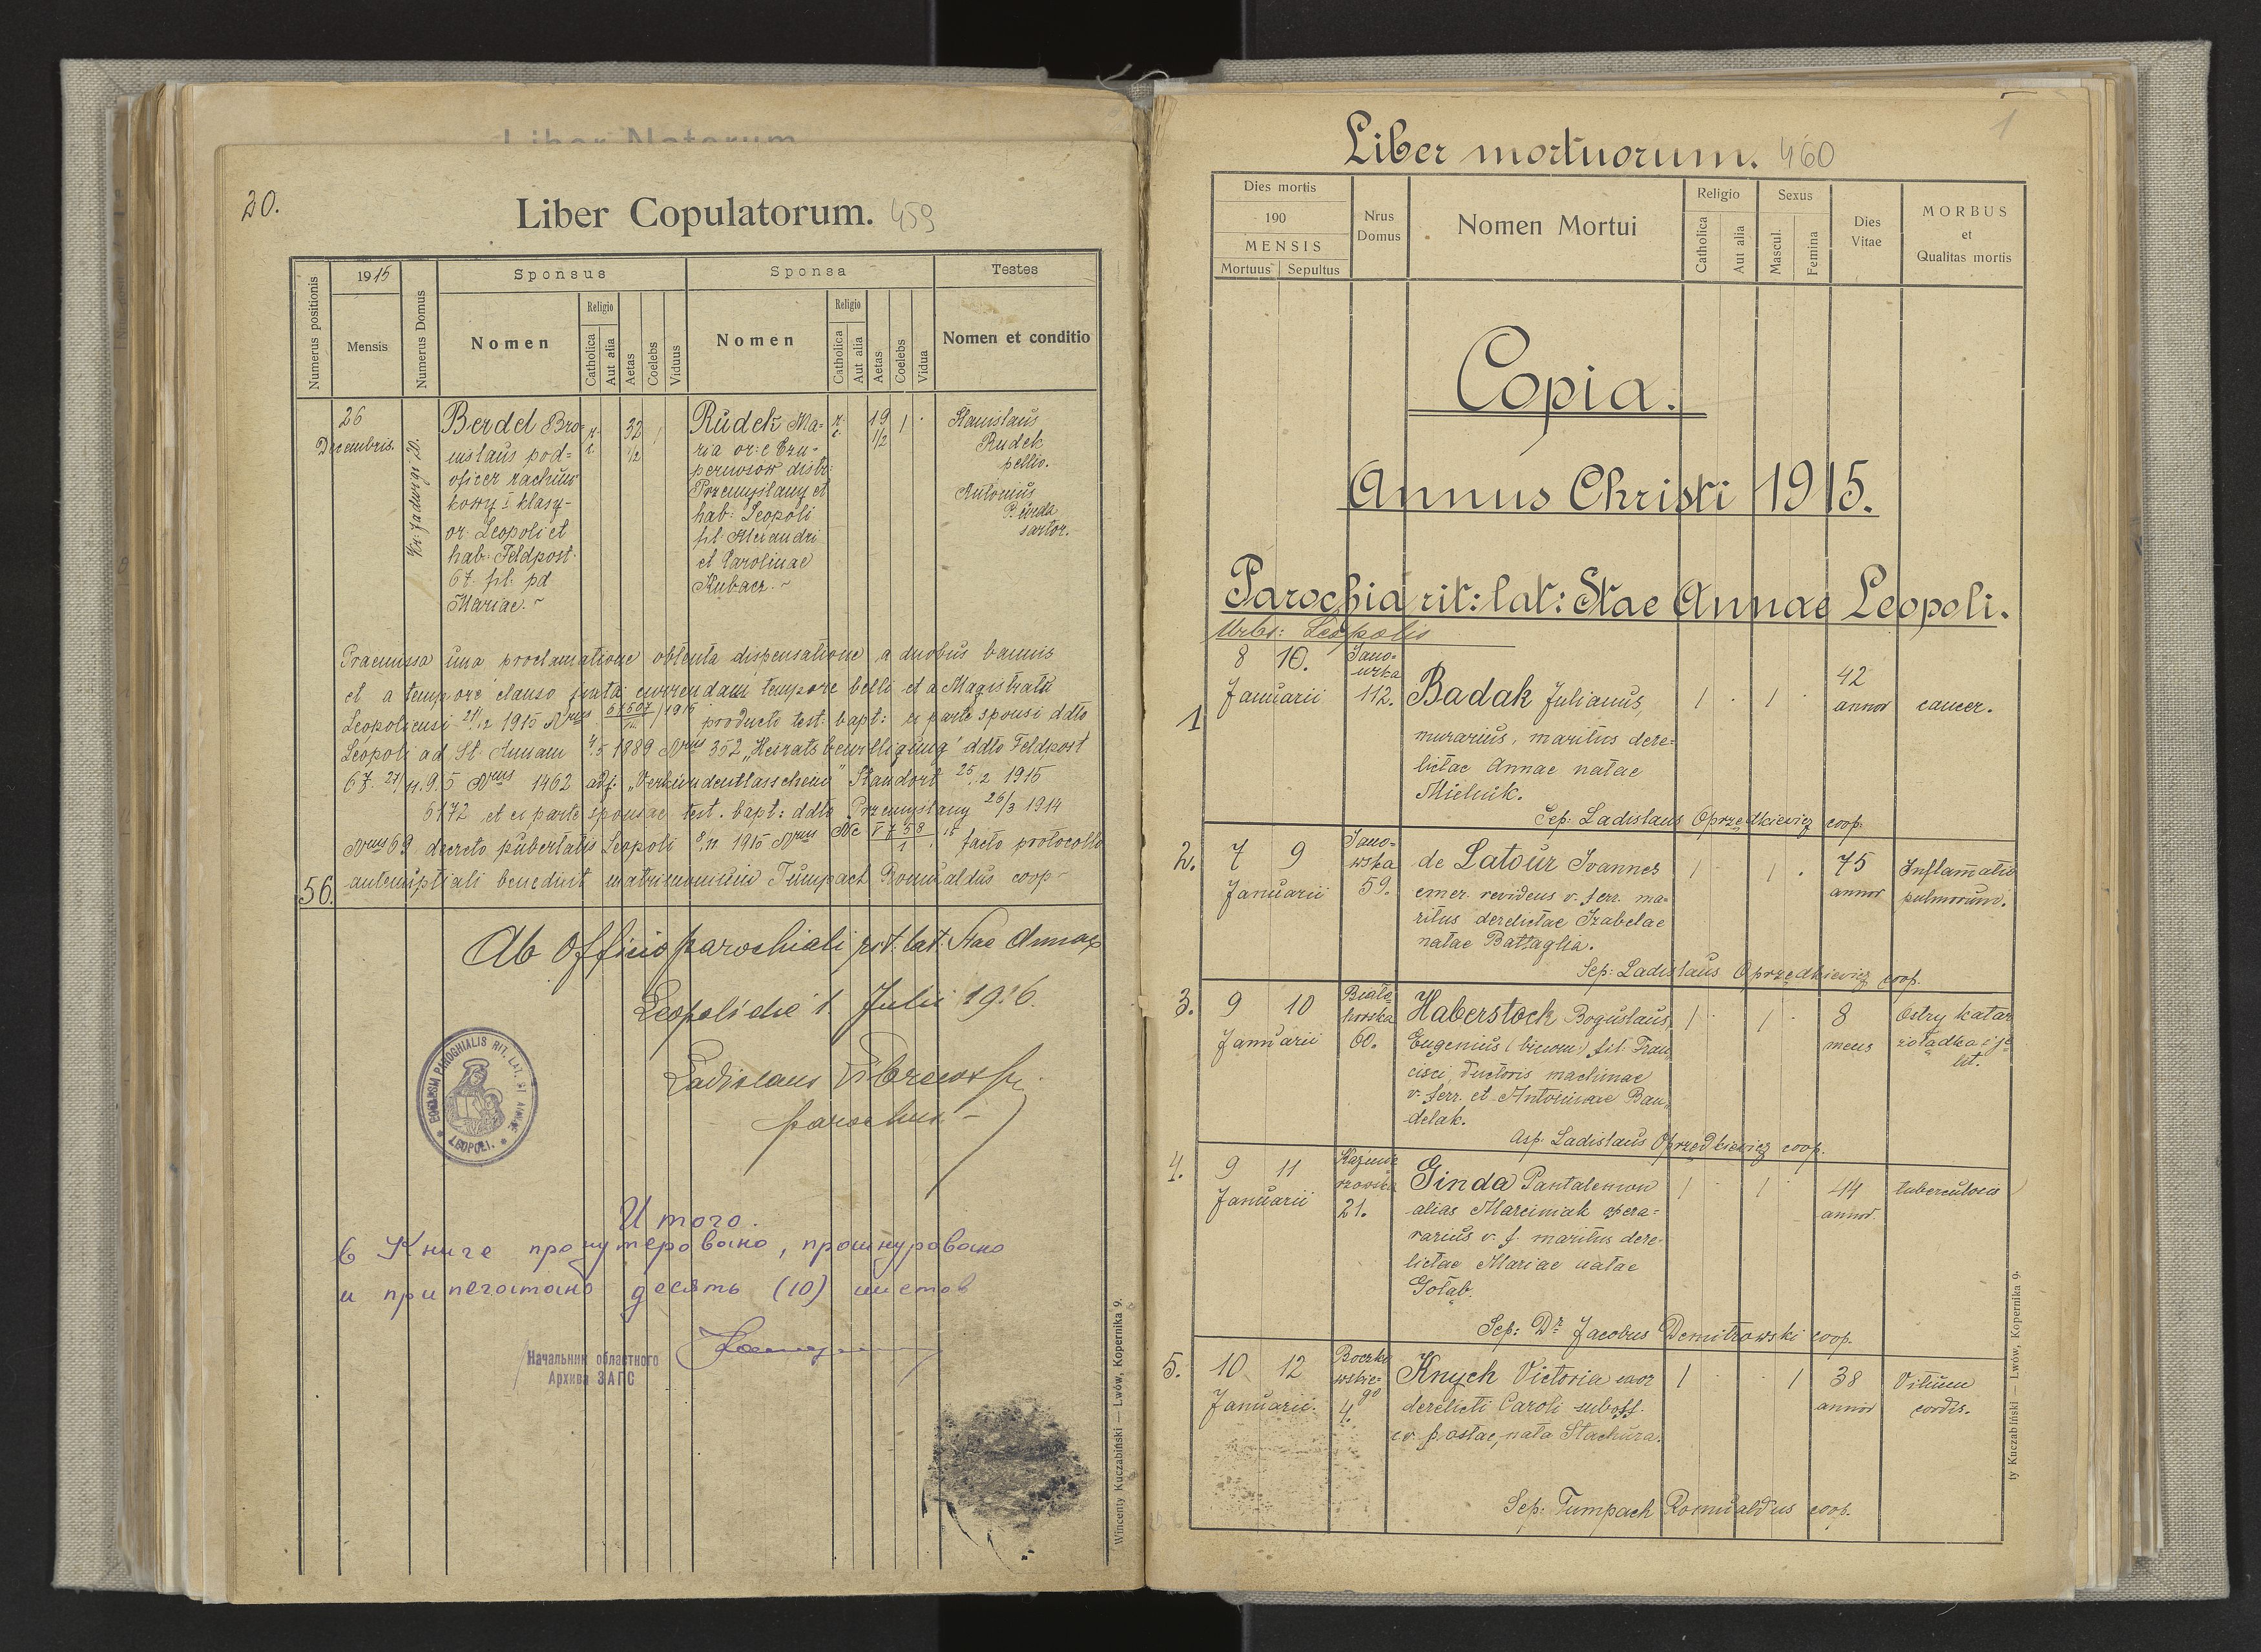 20.
Liber Copulatorum. 459
Numerus positionis
1915
Mensis
Numerus Domus
Sponsus
Nomen
Religio
Catholica
Aut alia
Aetas
Coelebs
Viduus
Sponsa
Nomen
Religio
Catholica
Aut alia
Aetas
Coelebs
Vidua
Testes
Nomen et conditio
26
Decembris.
Kr: Jadwigi 20.
Berdel Bro=
nislaus pod=
oficer rachun
kowy I klasy-
or: Leopoli et
hab: Feldpost
67. fil: pd
Mariae. ~
r.
c.
32
1/2
/
Rudek Ma=
ria or: e
distr:
Przemyslany et
hab: Leopoli
fil:
et Carolinae
Kubacz. ~
r.
c.
19
1/2
/
Stanislaus
Rudek
pellio.
Antonius
Burda
sartor.
Praemissa una proclamatione obtenta dispensatione a duobus bannis
et a tempore clauso juxta currendam tempore belli et a Magistratu
Leopoliensi 1915 Nrus producto test: bapt: ex parte sponsi ddto
Leopoli ad St. Annam 1889 Nrus 352 „Heiratsbewilligung" ddto Feldpost
67. Nrus 1462 adj: Standort 1915
6172 et ex parte sponsae test. bapt: ddto Przemyslany 26/3 1914
Nrus 69 decreto pubertatis Leopoli 1915 Nrus Nc facto protocollo
antenuptiali benedixit matrimonium Tumpach Romualdus coop-
56.
Ab Officio parochiali rit. lat. Stae Annae
Leopoli die 1. Julii 1916.
Ladislaus
parochus -
ECCLESIA PAROCHIALIS RIT. LAT. ST. ANNAE
LEOPOLI.
Итого.
В Книге пронумеровано, прошнуровано
и припечатано десять (10) листов
Начальник областного
Архива ЗАГС
Wincenty Kuczabiński — Lwów, Kopernika 9.
1
Liber mortuorum. 460
Dies mortis
190
MENSIS
Mortuus
Sepultus
Nrus
Domus
Nomen Mortui
Religio
Catholica
Aut alia
Sexus
Mascul.
Femina
Dies
Vitae
MORBUS
et
Qualitas mortis
Copia.
Annus Christi 1915.
Parochia rit: lat: Stae Annae Leopoli.
Urbs: Leopolis
1
8 10.
Januarii
112.
Badak Julianus,
murarius, maritus dere=
lictae Annae natae
Mielnik.
42
annor
cancer.
Sep: Ladislaus Oprzędkiewicz coop.
2.
7 9
Januarii
Jano=
wska
59.
de Latour Ioannes
emer. revidens v. ferr. ma=
ritus derelictae Izabelae
natae Battaglia.
75
annor
Inflamatio
pulmonum.
Sep: Ladislaus Oprzędkiewicz coop.
3.
9 10
Januarii
Biało=
horska
60.
Haberstock Boguslaus,
Eugenius (binom) fil: Fran
cisci ductoris machinae
v. ferr. et Antoninae Ban=
delak.
8
mens
Ostry katar
żołądka i je
lit.
Asp. Ladislaus Oprzędkiewicz coop.
4.
9 11
Januarii
Kazimie
rzowska
21.
Ginda Pantalemon
alias Marciniak opera=
rarius v. f. maritus dere-
lictae Mariae natae
Gołąb.
44
annor.
tuberculosis
Sep: Dr Jacobus Demitrowski coop.
5.
10 12
Januarii.
Boczko
wskie=
go
4.
Knych Victoria uxor
derelicti Caroli suboff.
postae, nata Stachura.
38
annor
Vitium
cordis.
Sep: Tumpach Romualdus coop.
ty Kuczabiński — Lwów, Kopernika 9.